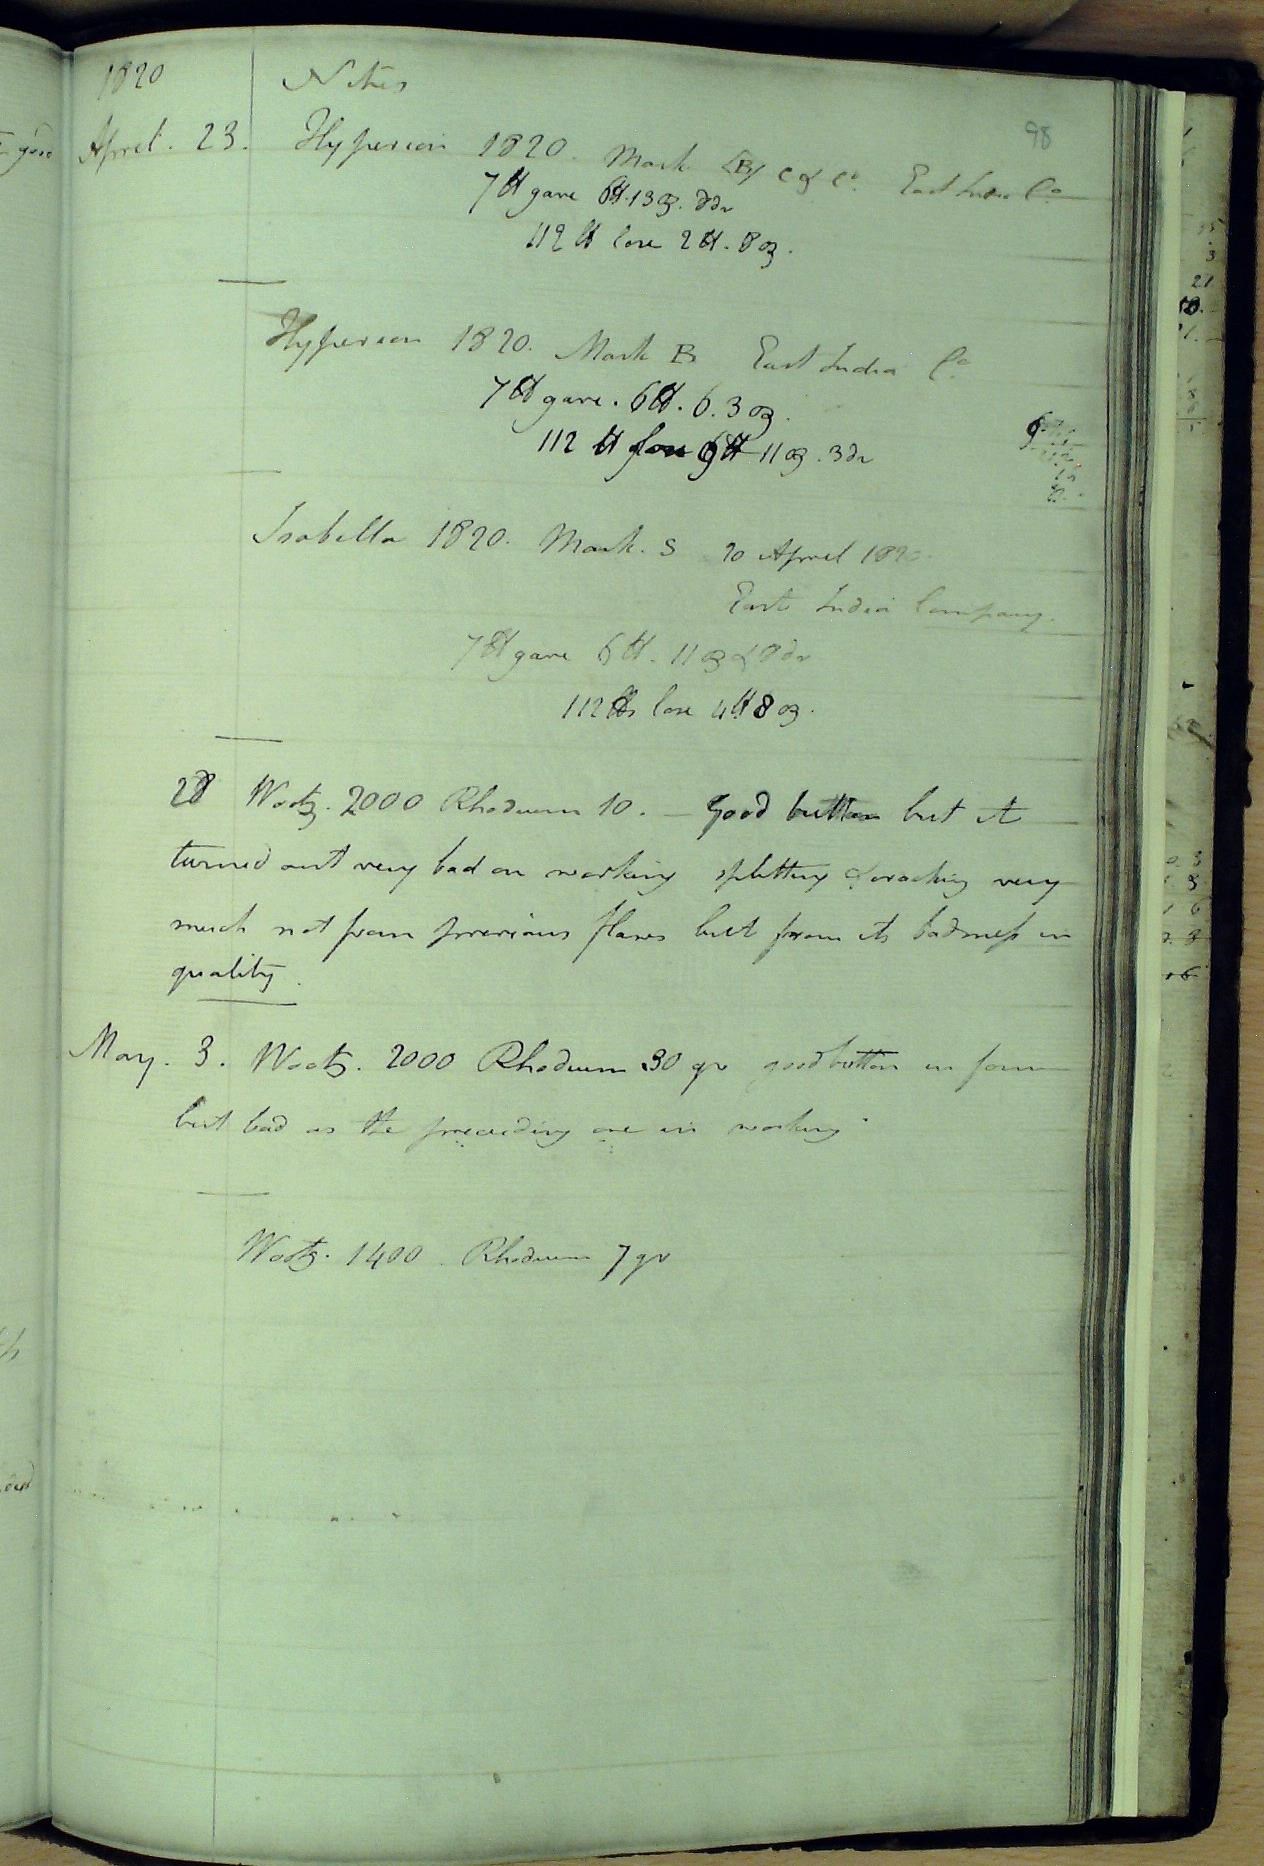 1820 Notes
98
April. 23. Hyperion 1820. Mark B C & Co. East India Co.
7 ℔ gave 6℔. 13 oz. 8dr
112 ℔ lose 2℔. 8 oz.
Hyperion 1820. Mark B East India Co.
7℔ gave. 6℔. 6.3 oz.
112 ℔ lose 9℔ 11 oz. 3dr
Isabella 1820. Mark. S 20 April 1820.
East India Company.
7℔ gave 6℔. 11 oz & 8dr
112℔s lose 4℔ 8 oz.
28 Wootz. 2000 Rhodium 10. — Good button but it
turned out very bad on working splitting & cracking very
much not from previous flaws but from its badness in
quality.
May. 3. Wootz. 2000 Rhodium 30 gr good button in form
but bad as the preceeding one in working
Wootz. 1400. Rhodium 7 gr